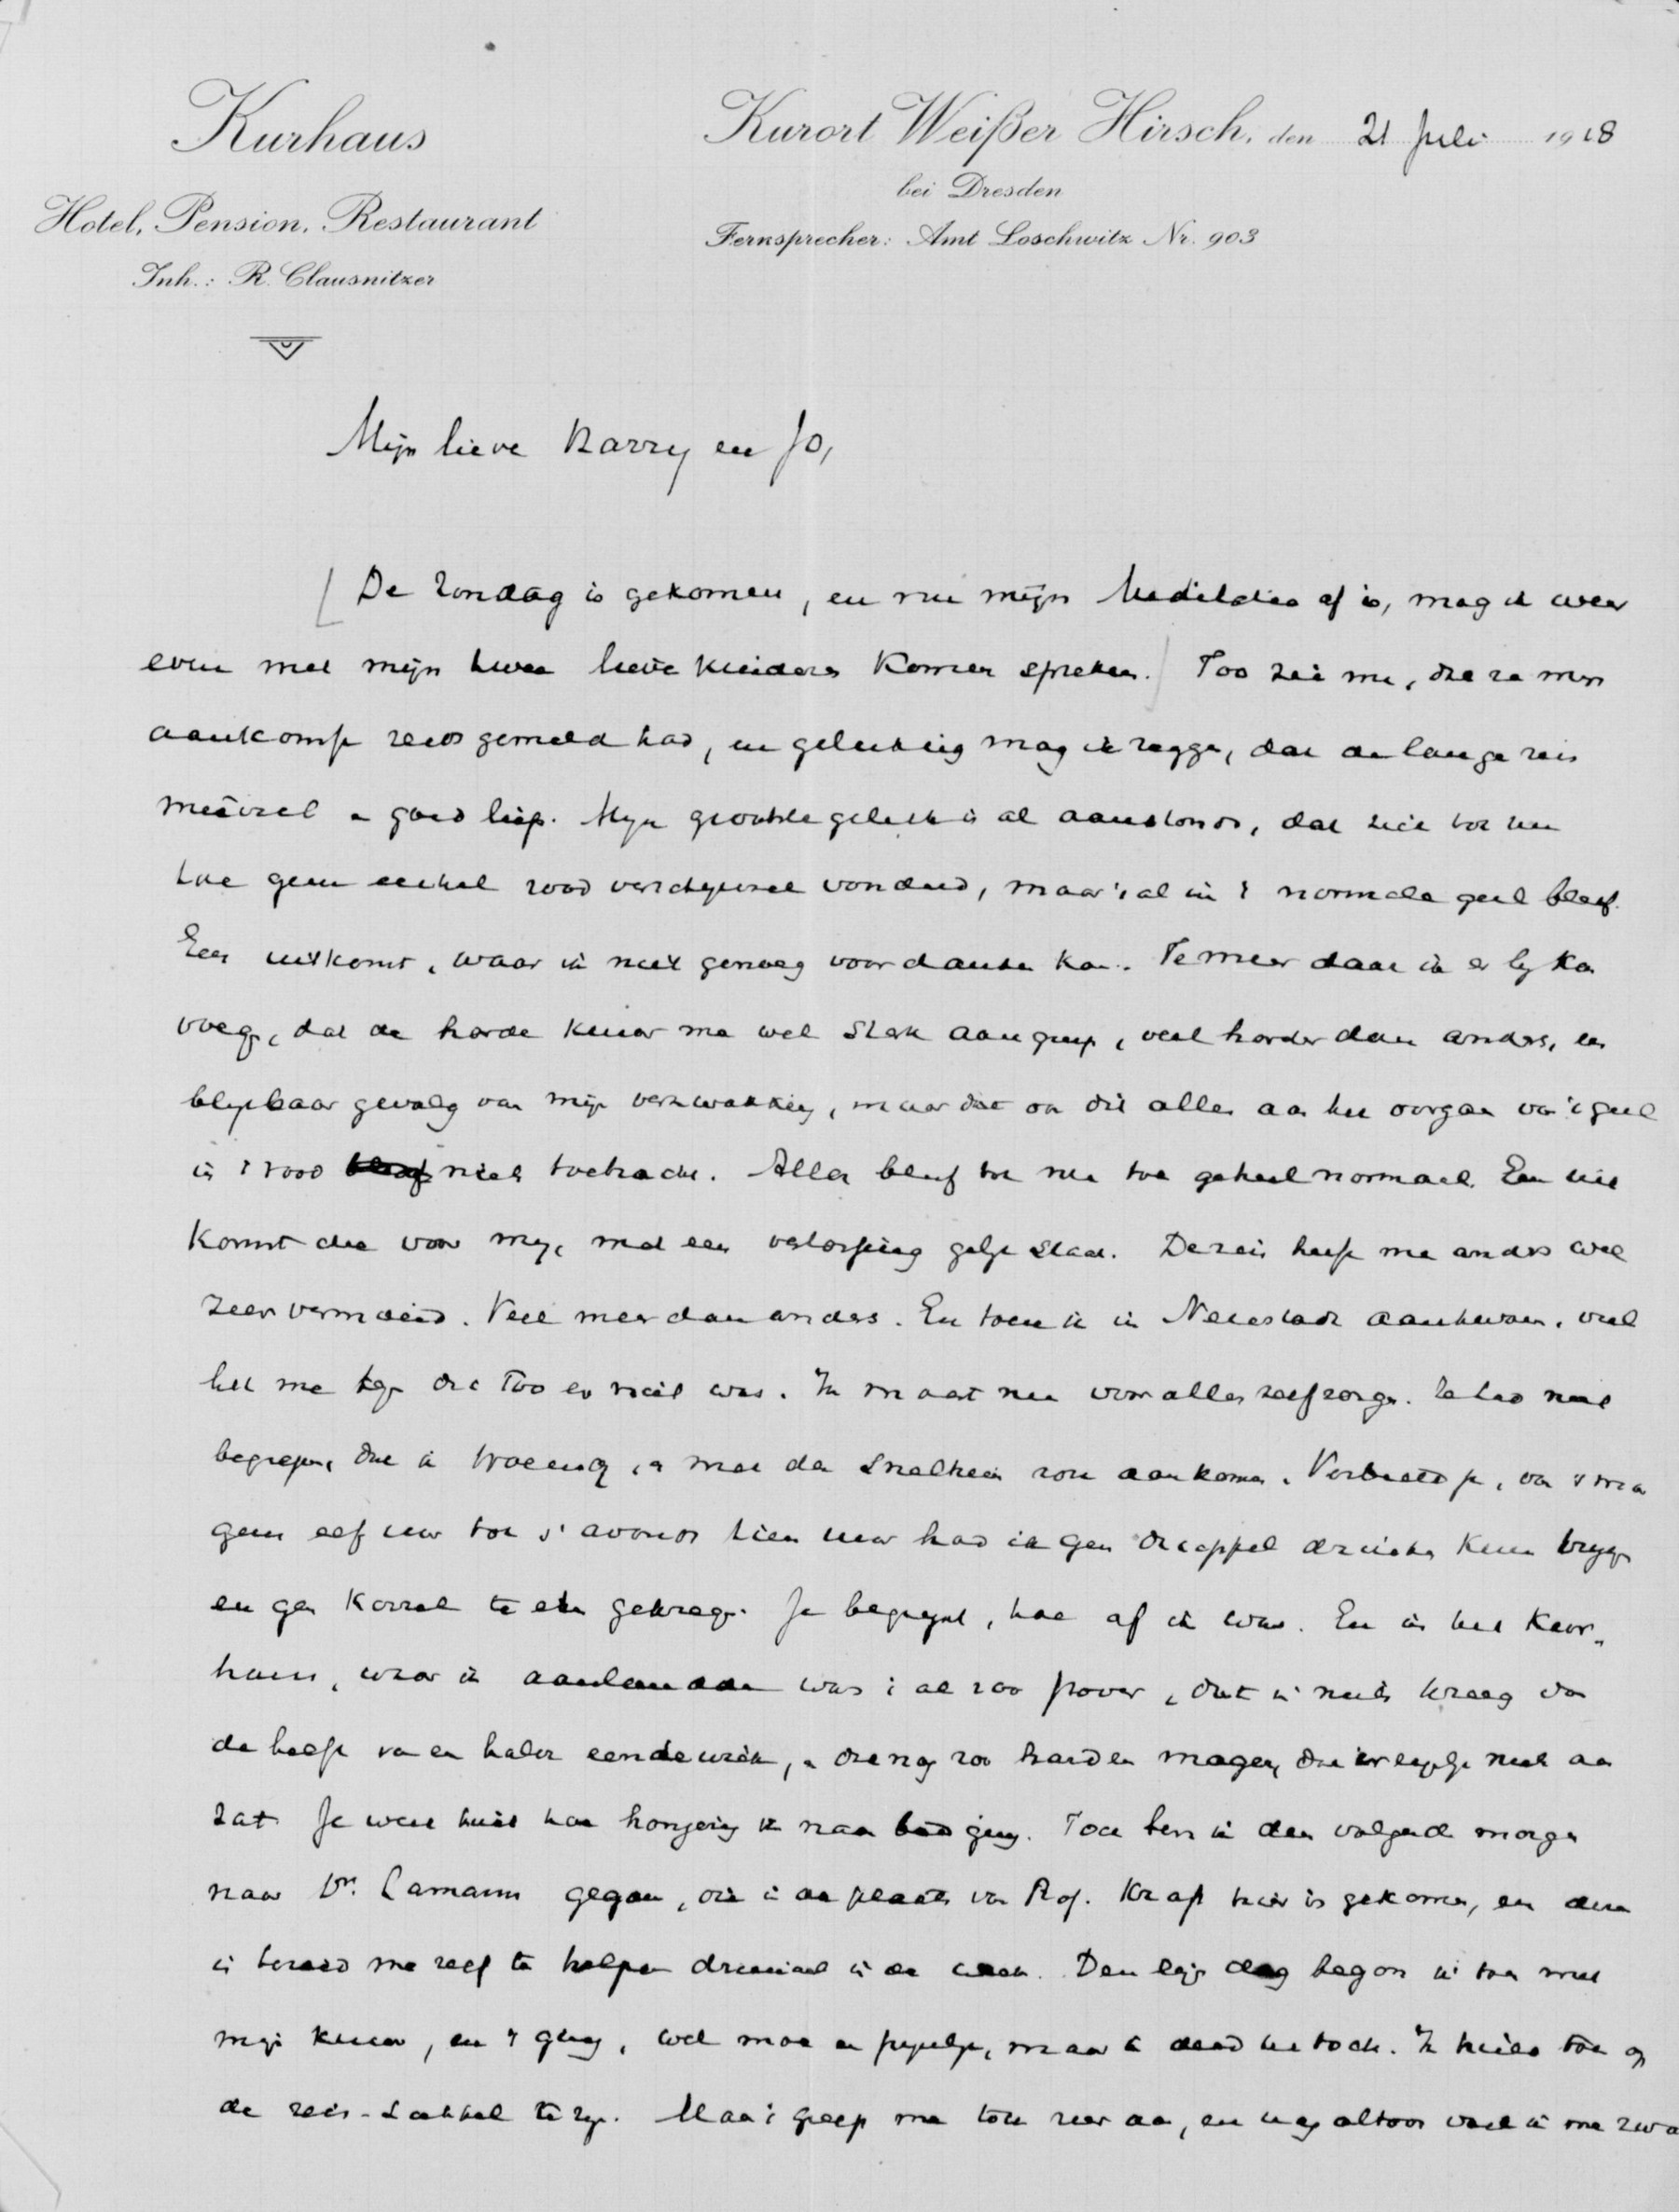 Kurhaus
Hotel, Pension, Restaurant
Inh.: R. Clausnitzer
Kurort Weißer Hirsch, den 21 Juli 1918
bei Dresden
Fernsprecher: Amt Loschwitz Nr. 903
Mijn lieve Harry en Jo,
De Zondag is gekomen, en nu mijn Meditatie af is, mag ik weer
even met mijn twee lieve kinders komen spreken. Too zei me, dat ze mijn
aankomst reeds gemeld had, en gelukkig mag ik zeggen, dat de lange reis
goed liep. Mijn grootste geluk is al aanstonds, dat zich tot nu
toe geen enkel rood verschijnsel voordeed, maar 't al in 't normale geel bleef.
Een uitkomst, waar ik niet genoeg voor danken kan. Te meer daar ik er bij kan
voegen, dat de harde kuur me wel sterk aangreep, veel harder dan anders, een
blijkbaar gevolg van mijn verzwakking, maar dat ook dit alles aan het overgaan van 't geel
in 't rood niets toebracht. Alles bleef tot nu toe geheel normaal. Een uit
komst die voor mij, met een verlossing gelijk staat. De reis heeft me anders wel
zeer vermoeid. Veel meer dan anders. En toen ik in Neustadt aankwam, viel
het me tegen dat Too er niet was. Ik moest nu voor alles zelf zorgen. Ze had niet
begrepen, dat ik met den sneltrein zou aankomen. Verbeeld je, van 's mor
gens elf uur tot 's avonds tien uur had ik geen droppel drinken kunnen krijgen
en geen korrel te eten gekregen. Je begrijpt, hoe af ik was. En in het Kuur-
haus, waar ik aanlandde was 't al zoo pover, dat ik niets kreeg dan
de helft van een halve eendewiek, en die nog zoo hard en mager, dat er niet aan
zat. Je weet niet hoe hongerig ik naar bed ging. Toen ben ik den volgende morgen
naar Dr. Lamann gegaan, die in de plaats van Prof. Kraft hier is gekomen, en deze
is bereid me zelf te helpen driemaal in de week. Den dag begon ik toen met
mijn kuur, en 't ging, wel moe en pijnlijk, maar ik deed het toch. Ik hield toen op
de reis-sukkel te zijn. Maar 't greep me toch zeer aan, en nog altoos voel ik me zwa